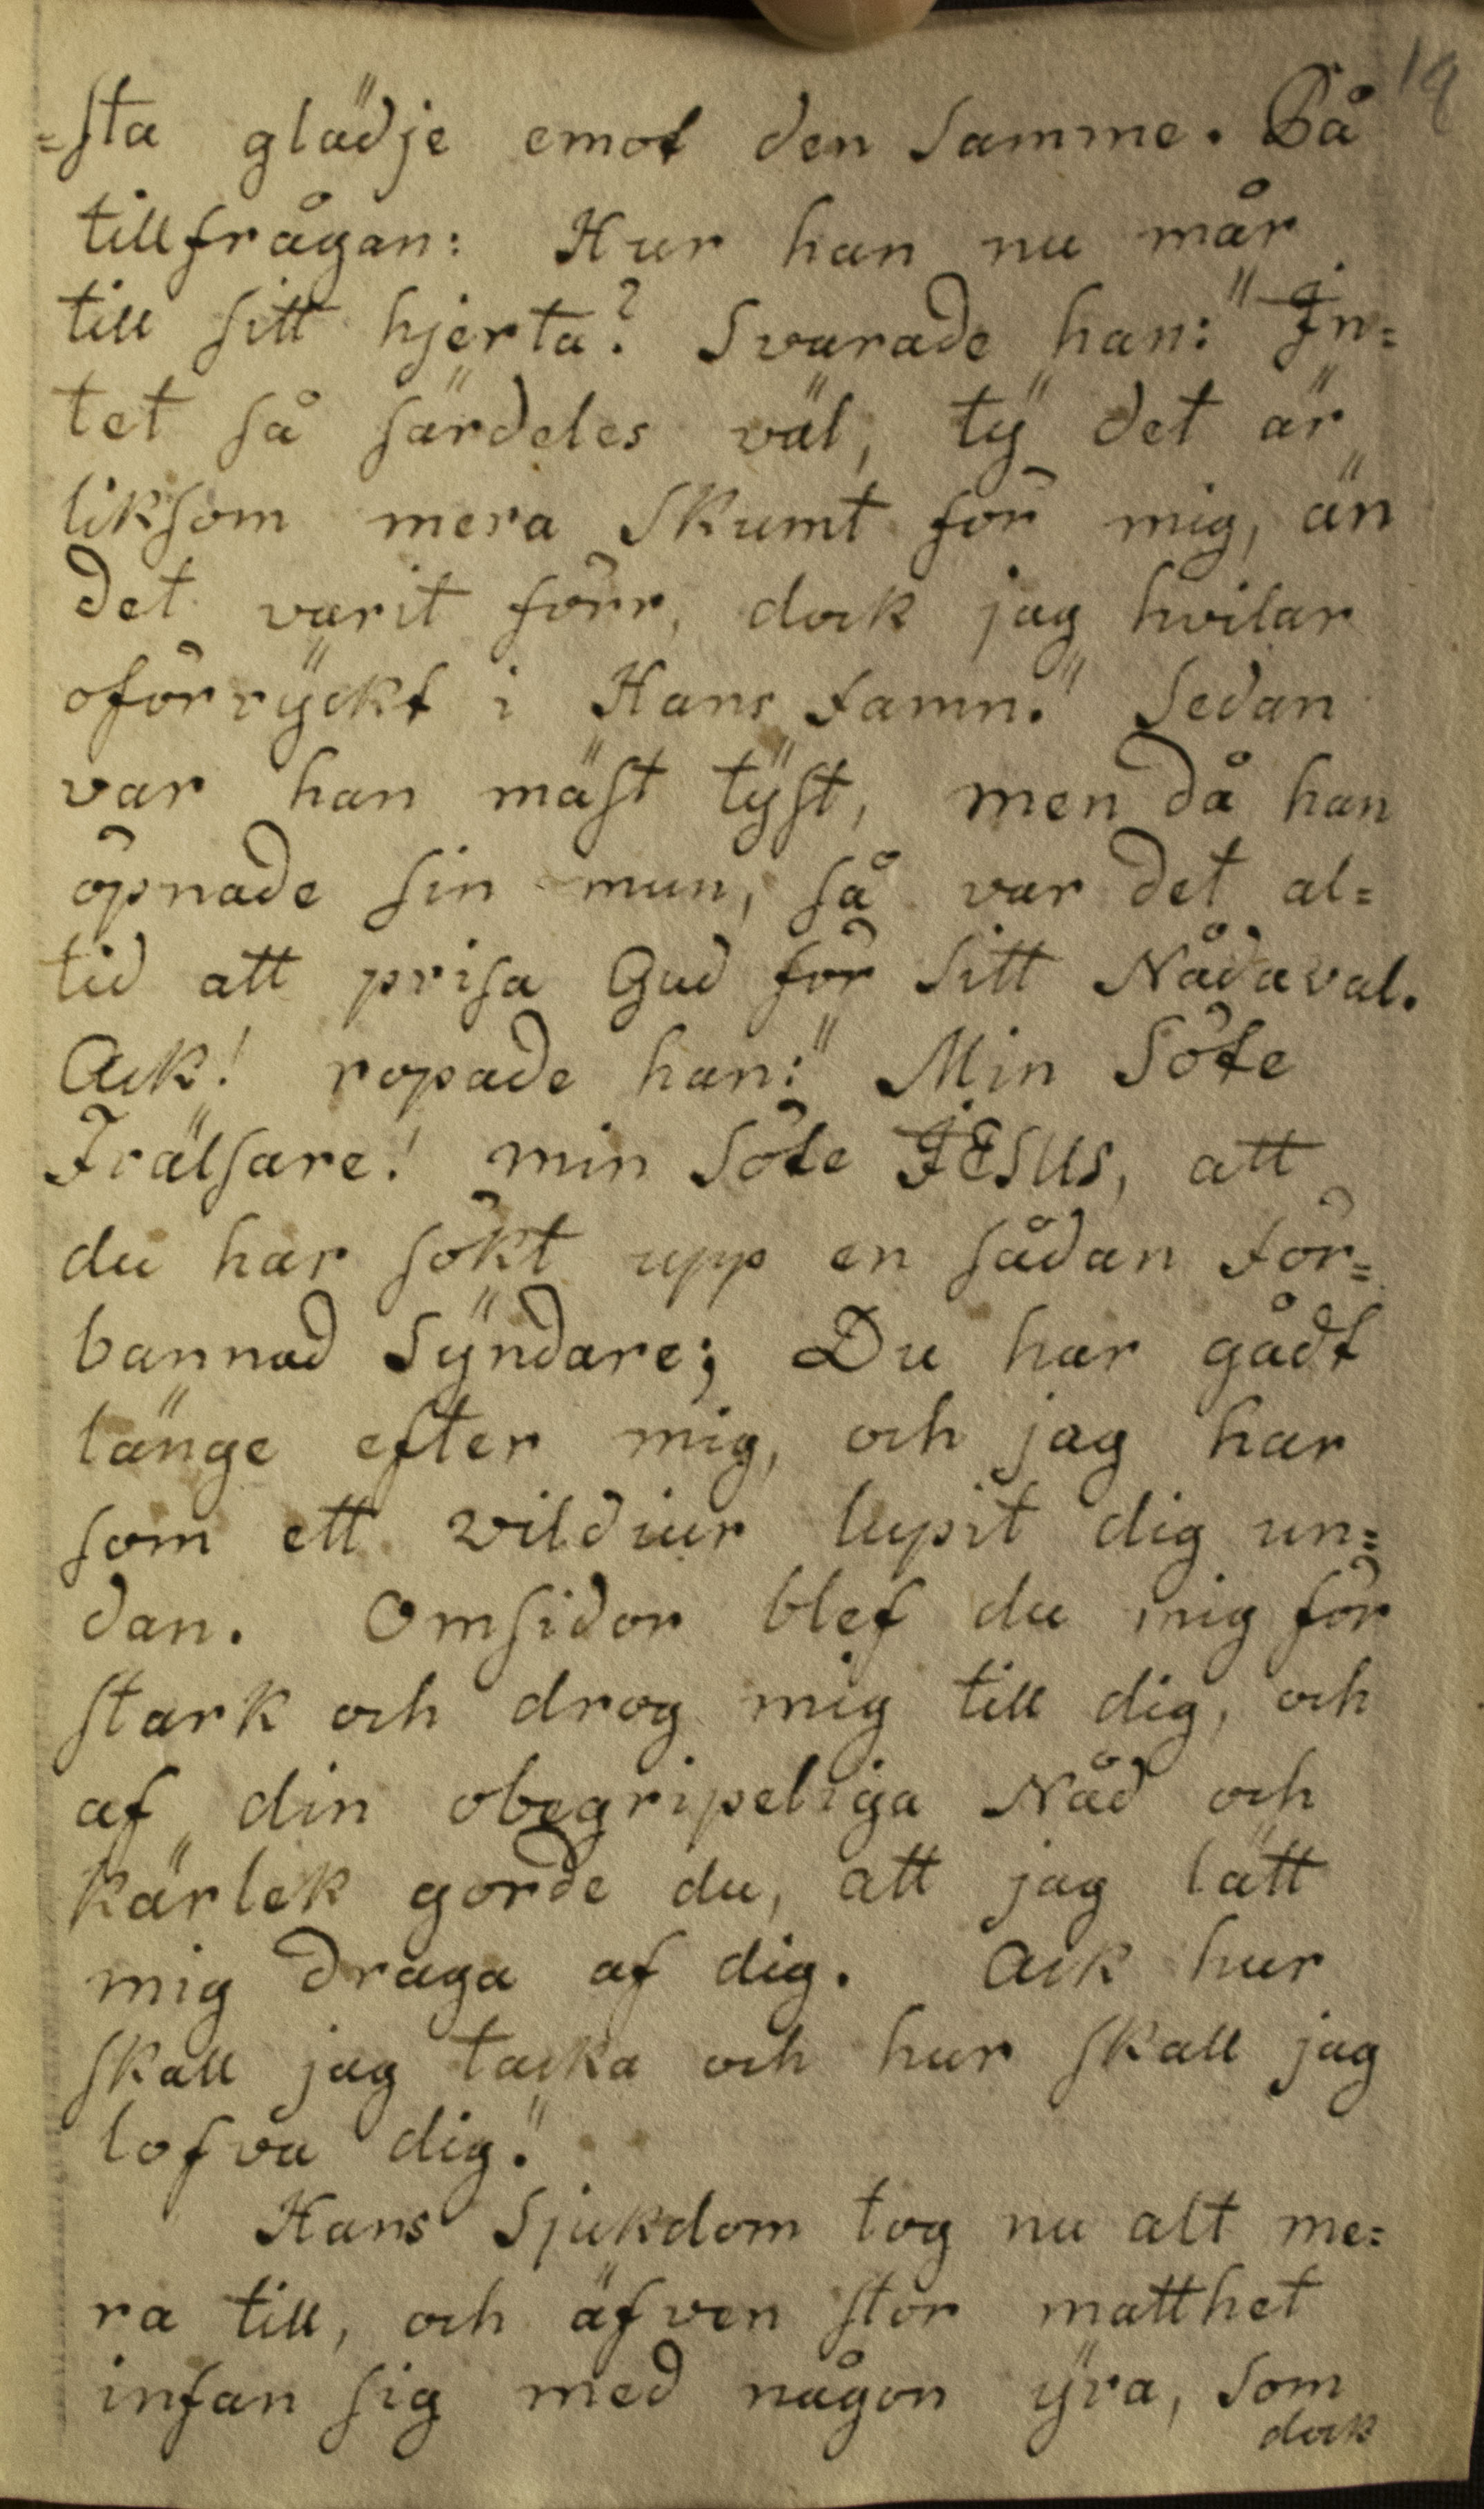 19
=sta glädje emot den samme. På
tillfrågan: Hur han nu mår
till sitt hjerta? Svarade han: "In=
tet så särdeles väl, tÿ det är
liksom mera skumt för mig, än
det varit förr, dock jag hvilar
oförrÿckt i Hans famn." Sedan
var han mäst tÿst, men då han
öpnade sin mun, så var det al=
tid att prisa Gud för sitt Nådaval.
Ack! ropade han: "Min Söte
Frälsare! min Söte JESUS, att
du har sökt upp en sådan för=
bannad Sÿndare; Du har gådt
länge efter mig, och jag har
som ett vildiur lupit dig un=
dan. Omsidor blef du mig för
stark och drog mig till dig, och
af din obegripeliga Nåd och
kärlek gorde du, att jag lätt
mig draga af dig. Ack hur
skall jag tacka och hur skall jag
lofva dig."
Hans Sjukdom tog nu alt me=
ra till, och äfven stor matthet
infan sig med någon ÿra, som
dock